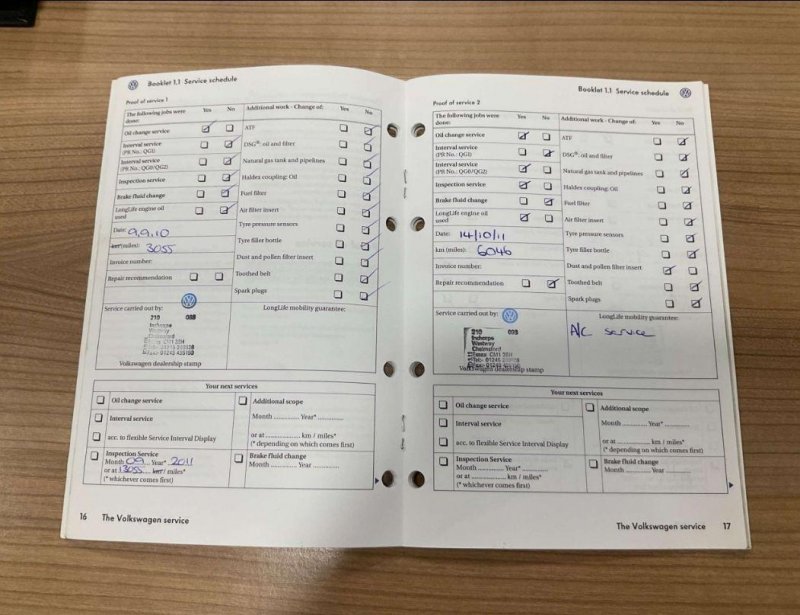 Booklet 1.1 Service schedule
Proof of service 1
The following jobs were done: Yes No
Oil change service
Interval service
(PR No.: QG1)
Interval service
(PR No.: QG0/QG2)
Inspection service
Brake fluid change
LongLife engine oil used
Date: 9.9.10
km (miles): 3055
Invoice number:
Repair recommendation
Service carried out by:
210
Inchcape
Westway
Chelmsford
CM1 3BH
Volkswagen dealership stamp
Additional work - Change of: Yes No
ATF
DSG®: oil and filter
Natural gas tank and pipelines
Haldex coupling: Oil
Fuel filter
Air filter insert
Tyre pressure sensors
Tyre filler bottle
Dust and pollen filter insert
Toothed belt
Spark plugs
LongLife mobility guarantee:
Your next services
Oil change service
Interval service
acc. to flexible Service Interval Display
Inspection Service
Month 09 Year* 2011
or at 13055 km/miles*
(* whichever comes first)
Additional scope
Month ............ Year* ............
or at ............ km / miles*
(* depending on which comes first)
Brake fluid change
Month ............ Year ............
16 The Volkswagen service
Booklet 1.1 Service schedule
Proof of service 2
The following jobs were done: Yes No
Oil change service
Interval service
(PR No.: QG1)
Interval service
(PR No.: QG0/QG2)
Inspection service
Brake fluid change
LongLife engine oil used
Date: 14/10/11
km (miles): 6046
Invoice number:
Repair recommendation
Service carried out by:
210
Inchcape
Westway
Chelmsford
Essex CM1 3BH
Volkswagen dealership stamp
Additional work - Change of: Yes No
ATF
DSG®: oil and filter
Natural gas tank and pipelines
Haldex coupling: Oil
Fuel filter
Air filter insert
Tyre pressure sensors
Tyre filler bottle
Dust and pollen filter insert
Toothed belt
Spark plugs
LongLife mobility guarantee:
A/C service
Your next services
Oil change service
Interval service
acc. to flexible Service Interval Display
Inspection Service
Month ............ Year* ............
or at ............ km / miles*
(* whichever comes first)
Additional scope
Month ............ Year* ............
or at ............ km / miles*
(* depending on which comes first)
Brake fluid change
Month ............ Year ............
The Volkswagen service 17